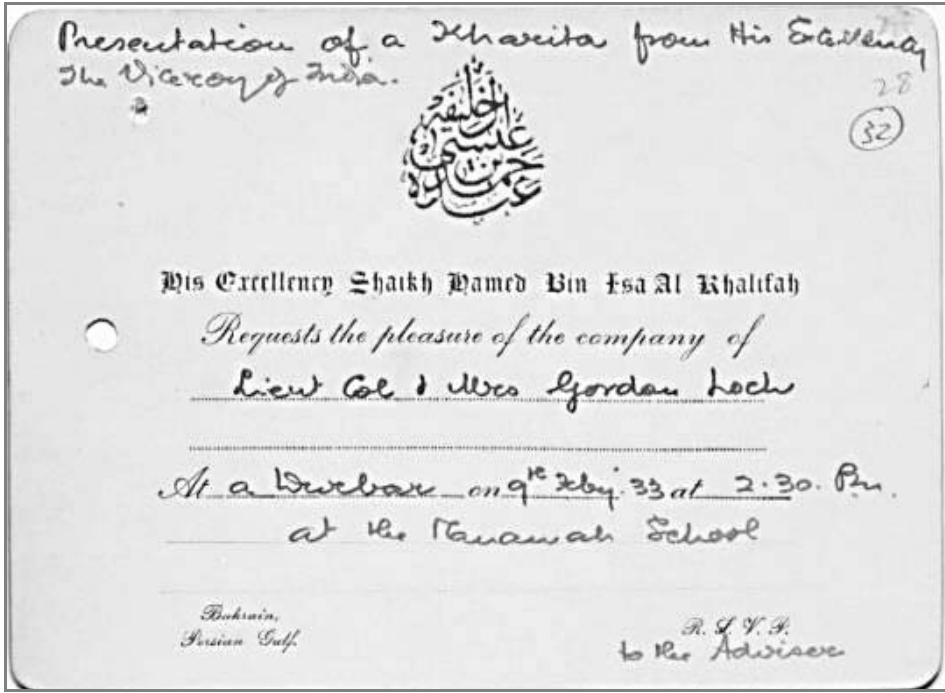 Presentation of a Kharita from His Excellency
The Viceroy of India.
28
32
عبده حمد بن عيسى الخليفه
His Excellency Shaikh Hamed Bin Isa Al Khalifah
Requests the pleasure of the company of
Lieut Col & Mrs Gordon Loch
At a Durbar on 9th Feby. 33 at 2.30. P.m.
at the Manamah School
Bahrain,
Persian Gulf.
R. S. V. P.
to the Adviser